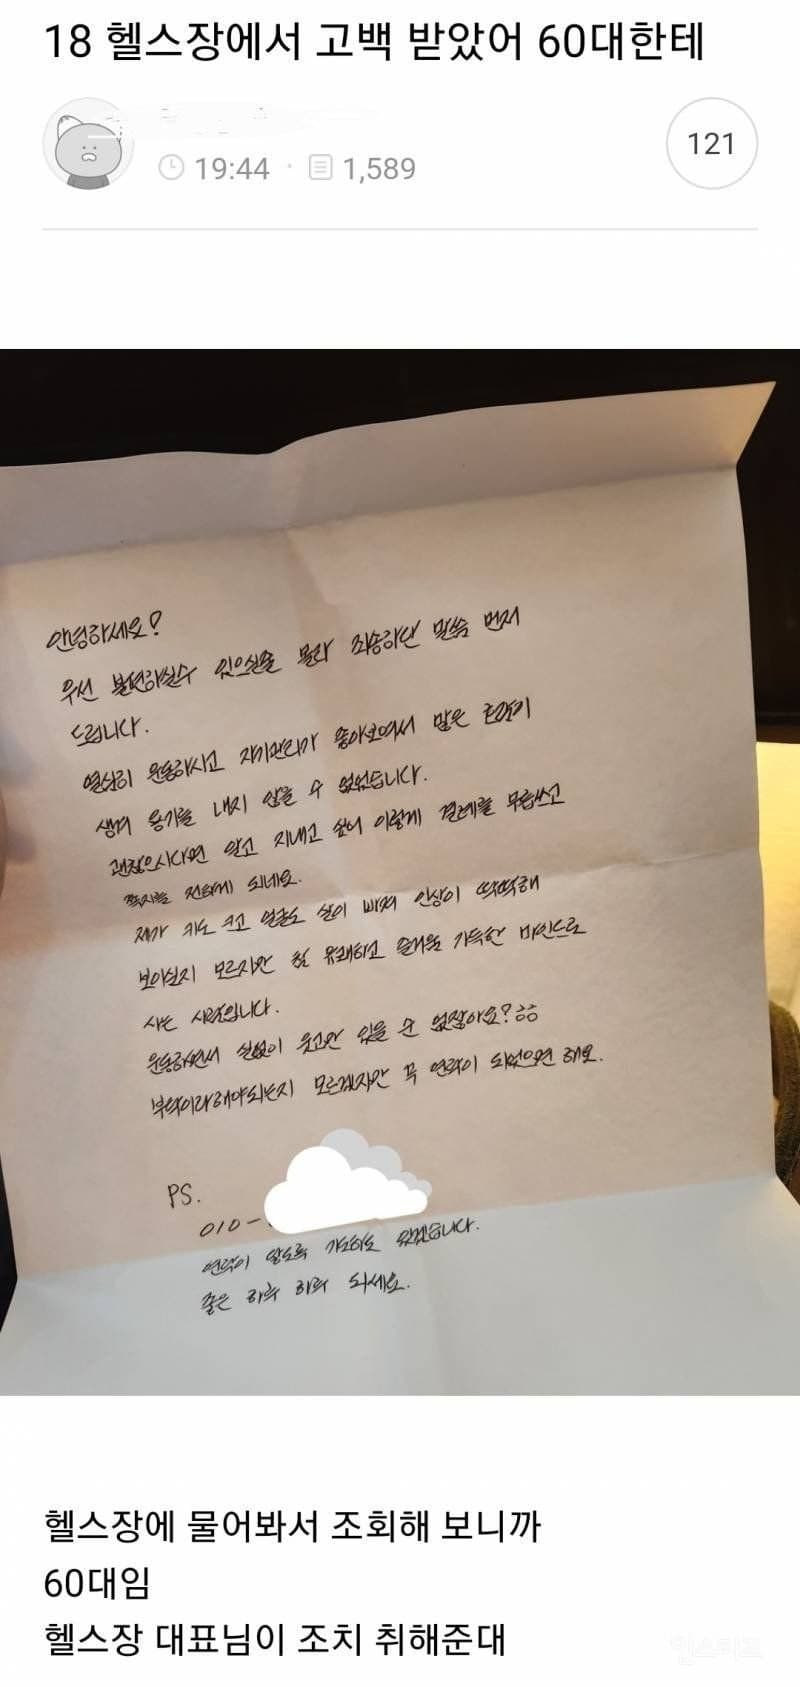 18 헬스장에서 고백 받았어 60대한테
19:44 · 1,589
121
안녕하세요?
우선 불편하실수 있으실줄 몰라 죄송하단 말씀 먼저
드립니다.
열심히 운동하시고 자기관리가 좋아보여서 많은 호감이
생겨 용기를 내지 않을 수 없었습니다.
괜찮으시다면 알고 지내고 싶어 이렇게 결례를 무릅쓰고
쪽지를 전하게 되네요.
제가 키도 크고 얼굴도 살이 빠져 인상이 딱딱해
보이실지 모르지만 참 유쾌하고 즐거움 가득한 마인드로
사는 사람입니다.
운동하면서 실없이 웃고만 있을 순 없잖아요?ㅎㅎ
부탁이라해야되는지 모르겠지만 꼭 연락이 되었으면 해요.
PS.
010-
연락이 오도록 기도하고 있겠습니다.
좋은 하루 하루 되세요.
헬스장에 물어봐서 조회해 보니까
60대임
헬스장 대표님이 조치 취해준대
인스티즈